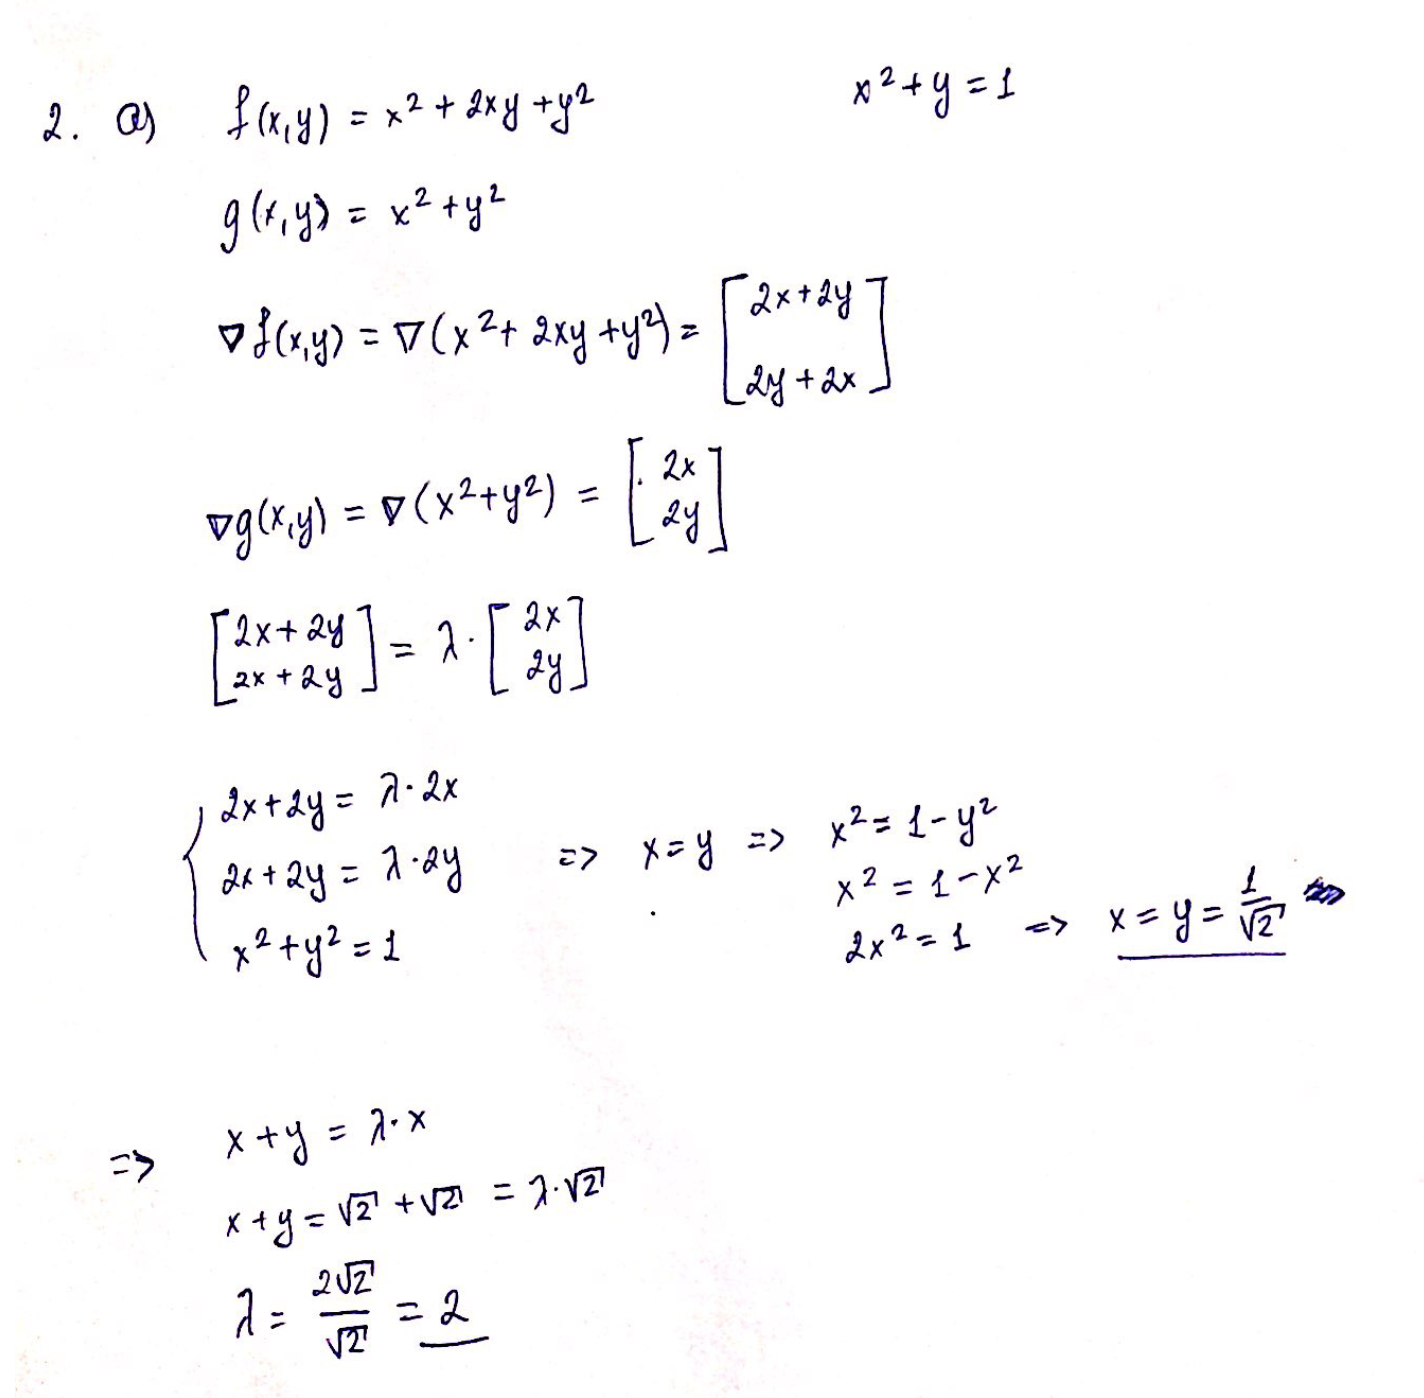 2. a) f(x,y) = x² + 2xy + y² x² + y = 1
g(x,y) = x² + y²
∇f(x,y) = ∇(x² + 2xy + y²) = [2x+2y
2y+2x]
∇g(x,y) = ∇(x²+y²) = [2x
2y]
[2x+2y
2x+2y] = λ·[2x
2y]
{2x+2y = λ·2x
2x+2y = λ·2y => x=y =>
x²+y²=1
x² = 1-y²
x² = 1-x²
2x² = 1 => x = y = 1/√2
=> x+y = λ·x
x+y = √2 + √2 = λ·√2
λ = 2√2/√2 = 2